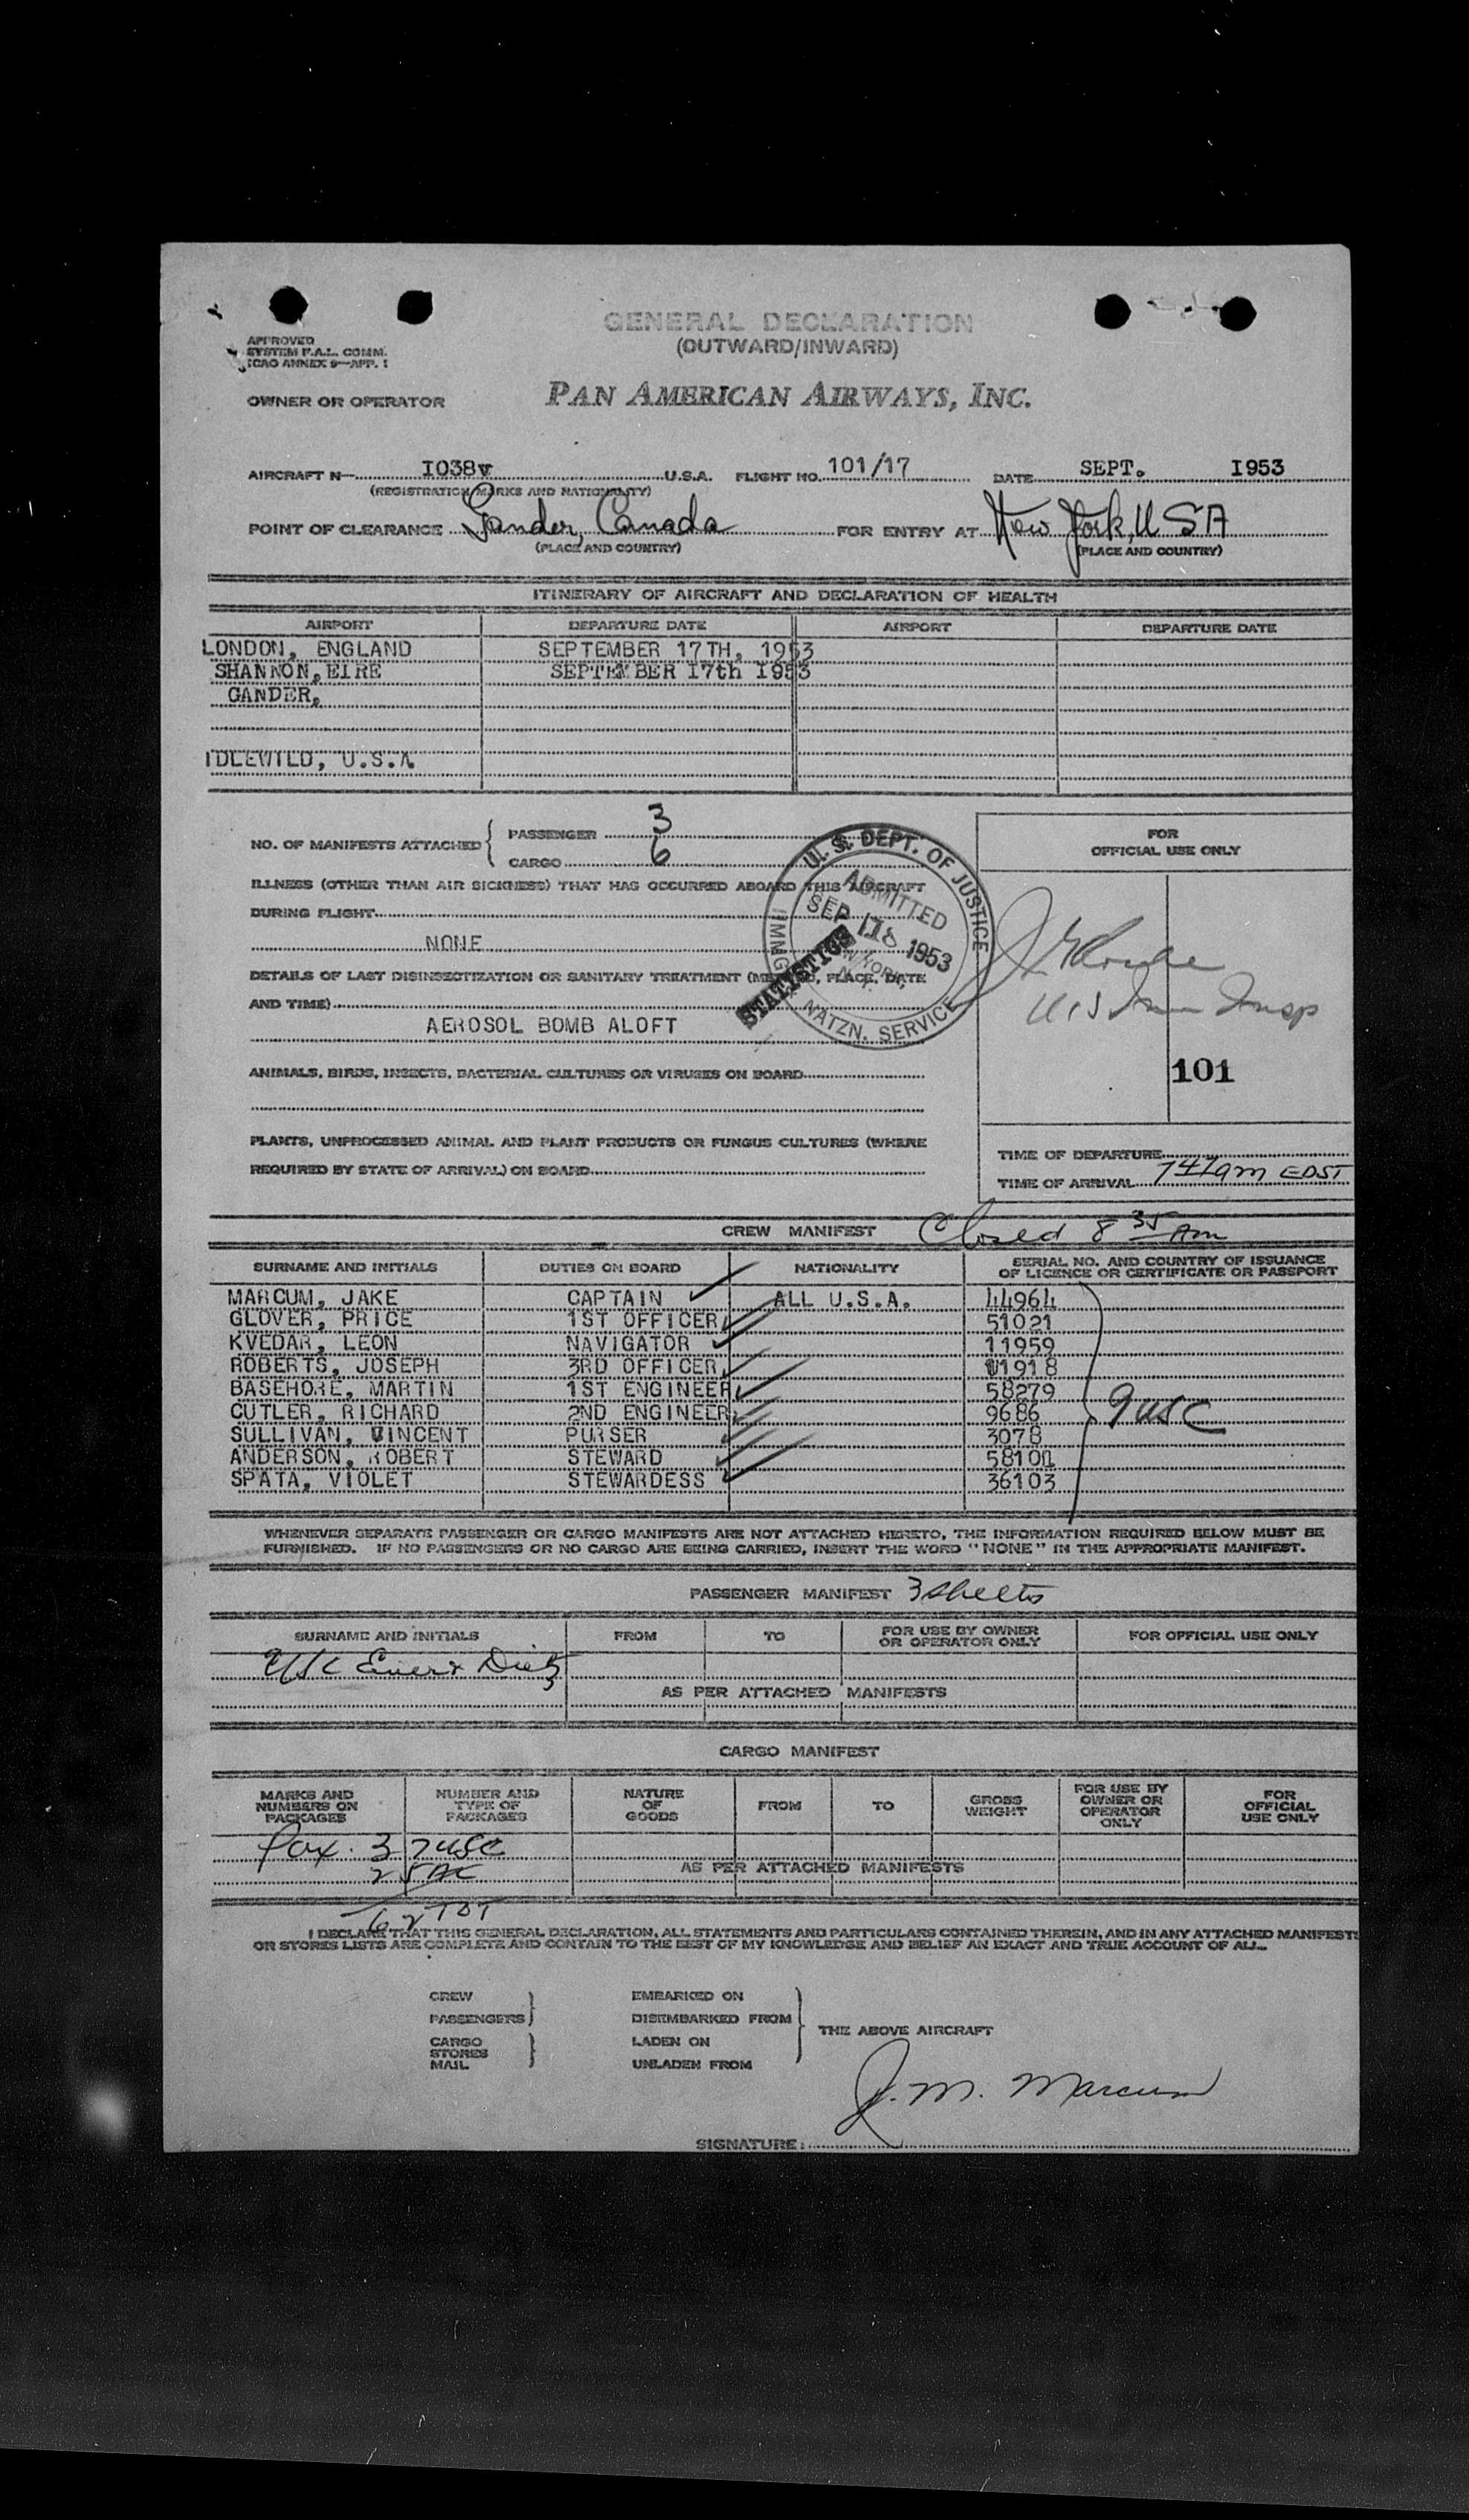 GENERAL DECLARATION
(OUTWARD/INWARD)
APPROVED
SYSTEM F.A.L. COMM.
ICAO ANNEX 9—APP. 1
OWNER OR OPERATOR PAN AMERICAN AIRWAYS, INC.
AIRCRAFT N— I038v U.S.A. FLIGHT NO. 101/17 DATE SEPT. I953
(REGISTRATION MARKS AND NATIONALITY)
POINT OF CLEARANCE Gander, Canada FOR ENTRY AT New York, USA
(PLACE AND COUNTRY) (PLACE AND COUNTRY)
ITINERARY OF AIRCRAFT AND DECLARATION OF HEALTH
AIRPORT DEPARTURE DATE AIRPORT DEPARTURE DATE
LONDON, ENGLAND SEPTEMBER 17TH, 1953
SHANNON, EIRE SEPTEMBER I7th I953
GANDER,
IDLEWILD, U.S.A.
NO. OF MANIFESTS ATTACHED { PASSENGER 3
CARGO 6
FOR
OFFICIAL USE ONLY
ILLNESS (OTHER THAN AIR SICKNESS) THAT HAS OCCURRED ABOARD THIS AIRCRAFT
DURING FLIGHT
NONE
DETAILS OF LAST DISINSECTIZATION OR SANITARY TREATMENT (METHOD, PLACE, DATE
AND TIME)
AEROSOL BOMB ALOFT
U. S. DEPT. OF JUSTICE
ADMITTED
SEP 18 1953
NEW YORK, N.Y.
IMMG. NATZN. SERVICE
STATISTICS
U.S. Insp
101
ANIMALS, BIRDS, INSECTS, BACTERIAL CULTURES OR VIRUSES ON BOARD
PLANTS, UNPROCESSED ANIMAL AND PLANT PRODUCTS OR FUNGUS CULTURES (WHERE
REQUIRED BY STATE OF ARRIVAL) ON BOARD
TIME OF DEPARTURE
TIME OF ARRIVAL 747am EDST
CREW MANIFEST Closed 8 35 Am
SURNAME AND INITIALS DUTIES ON BOARD NATIONALITY SERIAL NO. AND COUNTRY OF ISSUANCE
OF LICENCE OR CERTIFICATE OR PASSPORT
MARCUM, JAKE CAPTAIN ALL U.S.A. 44964
GLOVER, PRICE 1ST OFFICER 51021
KVEDAR, LEON NAVIGATOR 11959
ROBERTS, JOSEPH 3RD OFFICER 1918
BASEHORE, MARTIN 1ST ENGINEER 58279
CUTLER, RICHARD 2ND ENGINEER 9686 9 USC
SULLIVAN, VINCENT PURSER 3078
ANDERSON, ROBERT STEWARD 5810
SPATA, VIOLET STEWARDESS 36103
WHENEVER SEPARATE PASSENGER OR CARGO MANIFESTS ARE NOT ATTACHED HERETO, THE INFORMATION REQUIRED BELOW MUST BE
FURNISHED. IF NO PASSENGERS OR NO CARGO ARE BEING CARRIED, INSERT THE WORD "NONE" IN THE APPROPRIATE MANIFEST.
PASSENGER MANIFEST 3 sheets
SURNAME AND INITIALS FROM TO FOR USE BY OWNER
OR OPERATOR ONLY FOR OFFICIAL USE ONLY
AS PER ATTACHED MANIFESTS
CARGO MANIFEST
MARKS AND
NUMBERS ON
PACKAGES NUMBER AND
TYPE OF
PACKAGES NATURE
OF
GOODS FROM TO GROSS
WEIGHT FOR USE BY
OWNER OR
OPERATOR
ONLY FOR
OFFICIAL
USE ONLY
Pax. 37 USC
25 AC AS PER ATTACHED MANIFESTS
62 TOT
I DECLARE THAT THIS GENERAL DECLARATION, ALL STATEMENTS AND PARTICULARS CONTAINED THEREIN, AND IN ANY ATTACHED MANIFESTS
OR STORES LISTS ARE COMPLETE AND CONTAIN TO THE BEST OF MY KNOWLEDGE AND BELIEF AN EXACT AND TRUE ACCOUNT OF ALL.
CREW EMBARKED ON
PASSENGERS DISEMBARKED FROM
THE ABOVE AIRCRAFT
CARGO LADEN ON
STORES
MAIL UNLADEN FROM
SIGNATURE: J. M. Marcum